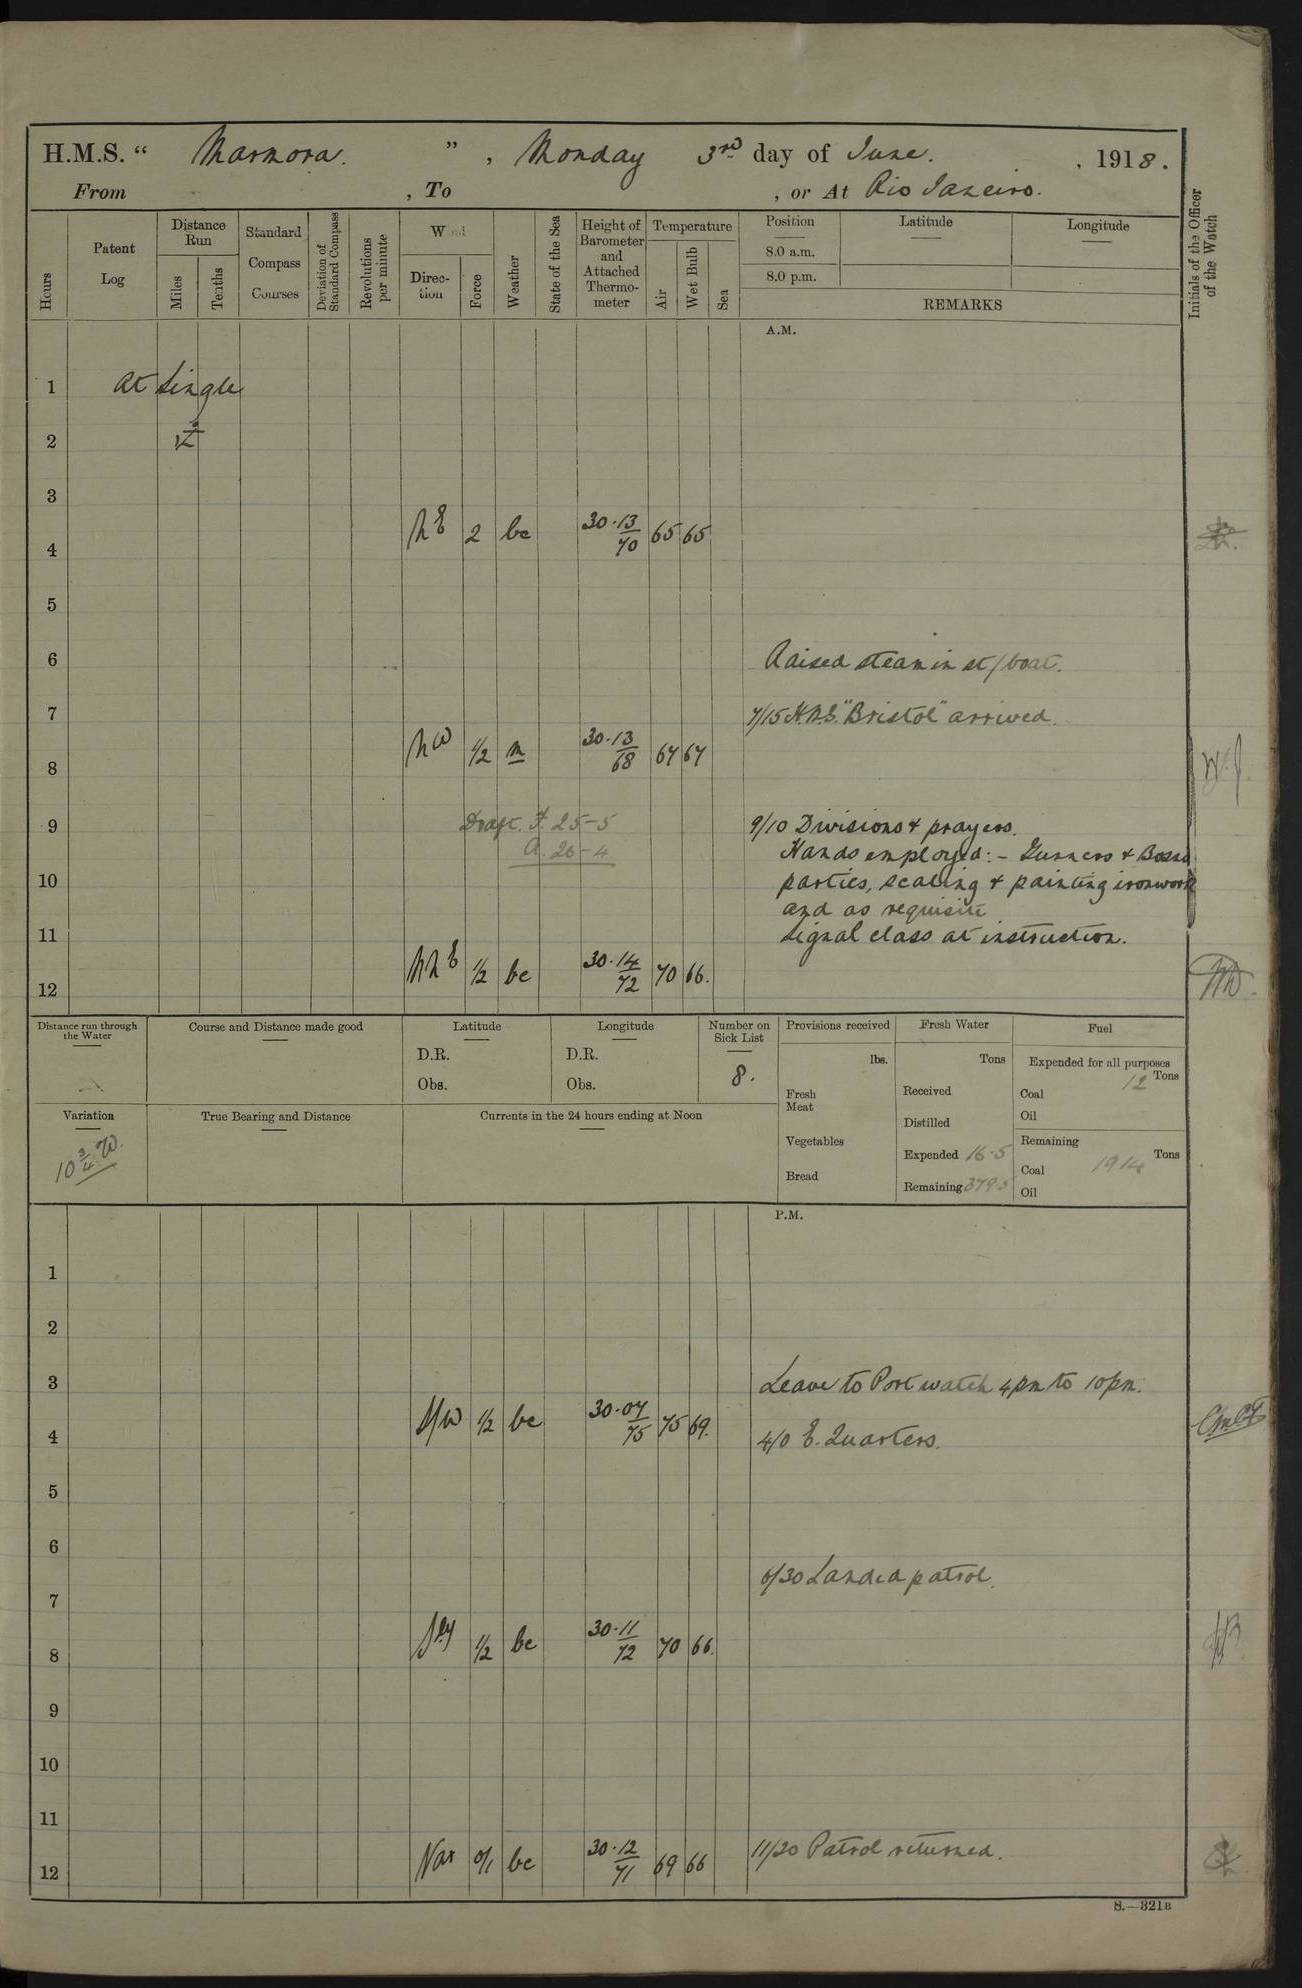 H.M.S. “ Marmora. ” , Monday 3rd day of June. , 1918.
From , To , or At Rio Janeiro.
Hours
Patent Log
Distance Run
Miles
Tenths
Standard Compass Courses
Deviation of Standard Compass
Revolutions per minute
Wind
Direc- tion
Force
Weather
State of the Sea
Height of Barometer and Attached Thermo- meter
Temperature
Air
Wet Bulb
Sea
Position
8.0 a.m.
8.0 p.m.
Latitude
Longitude
REMARKS
Initials of the Officer of the Watch
A.M.
1 At Single
2
3
4 NE 2 bc 30·13/70 65 65
5
6 Raised steam in st/boat.
7 7/15 H.M.S. "Bristol" arrived.
8 NW 1/2 m 30·13/68 67 67
9 Draft. F. 25-5 9/10 Divisions & prayers.
A. 26-4 Hands employed:- Gunners & Bosns
10 parties, scaling & painting ironwork
and as requisite
11 Signal class at instruction.
12 NNE 1/2 bc 30·14/72 70 66.
Distance run through the Water
Course and Distance made good
Latitude
D.R.
Obs.
Longitude
D.R.
Obs.
Number on Sick List
8.
Provisions received
lbs.
Fresh Meat
Vegetables
Bread
Fresh Water
Tons
Received
Distilled
Expended 16·5
Remaining 379·5
Fuel
Expended for all purposes
Tons
Coal 12
Oil
Remaining
Tons
Coal 1914
Oil
Variation
10 3/4 W.
True Bearing and Distance
Currents in the 24 hours ending at Noon
P.M.
1
2
3 Leave to Port watch 4pm to 10pm.
4 S/W 1/2 bc 30·07/75 75 69. 4/0 E. Quarters.
5
6
6/30 Landed patrol.
7
8 Sly 1/2 bc 30·11/72 70 66.
9
10
11
12 Var 0/1 bc 30·12/71 69 66 11/20 Patrol returned.
S.—321B